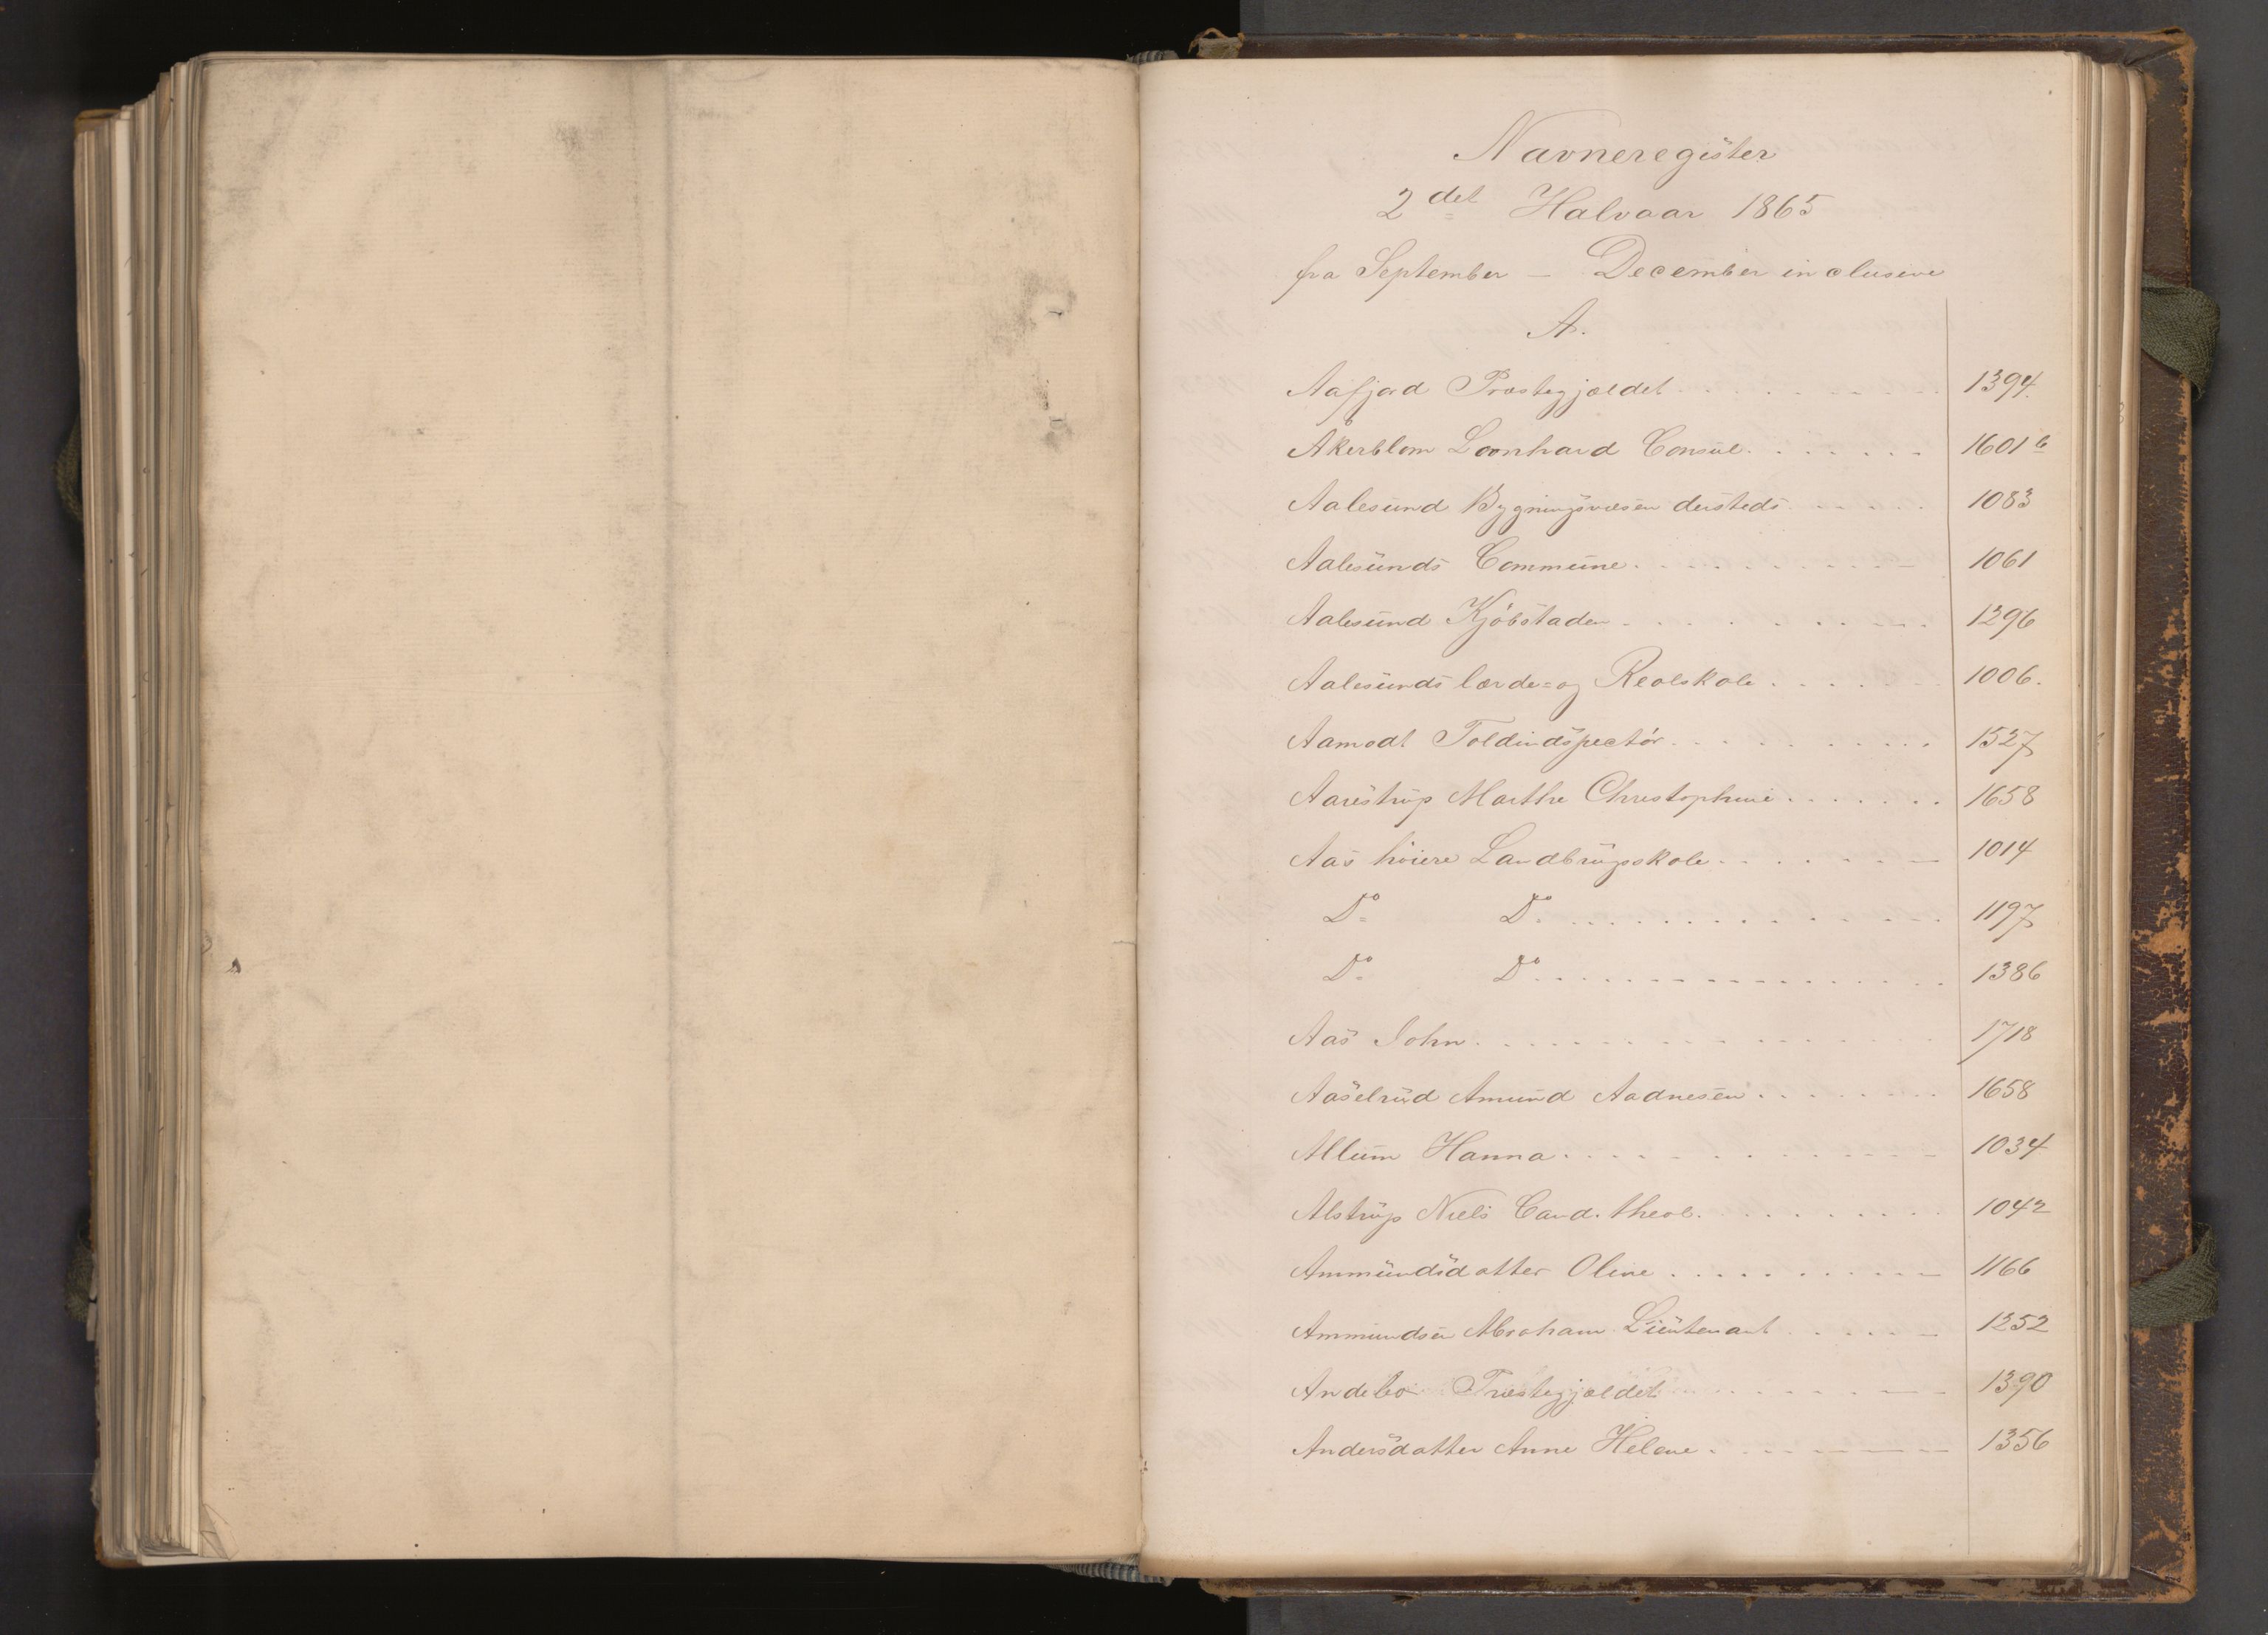 Navneregister
2det Halvaar 1865
fra September – December inclusive
A.
Aafjord Præstegjældet 1394.
Åkerblom Leonhard Consul 1601 b
Aalesund Bygningsvæsen dersteds 1083
Aalesunds Commune 1061
Aalesund Kjöbstaden 1296
Aalesunds lærde= og Realskole 1006.
Aamodt Toldindspectör 1527
Aarestrup Marthe Christophine 1658
Aas höiere Landbrugsskole 1014
Do Do 1197
Do Do 1386
Aas John 1718
Aaselrud Amund Aadnesen 1658
Allum Hanna 1034
Alstrup Niels Cand. theol. 1042
Ammundsdatter Oline 1166
Ammundsen Abraham Lieutenant 1252
Andebo Præstegjældet 1390
Andersdatter Anne Helene 1356